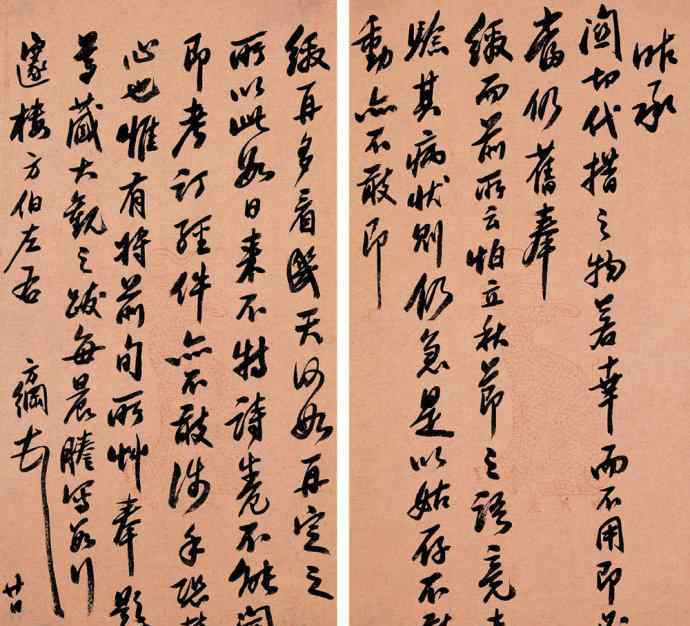 昨承
關切代措之物若幸而不用即
當仍舊奉
繳而前所云怕立秋節之語竟
驗其病狀則仍急是以姑存不敢
動亦不敢即
繳再多看幾天仍如再定之
所以此數日來不特詩卷不能
即考訂經件亦不敢涉手恐
心也惟有將前旬所艸奉題
尊藏大觀之跋每晨謄寫數行
蘧樓方伯左右
方綱
廿日